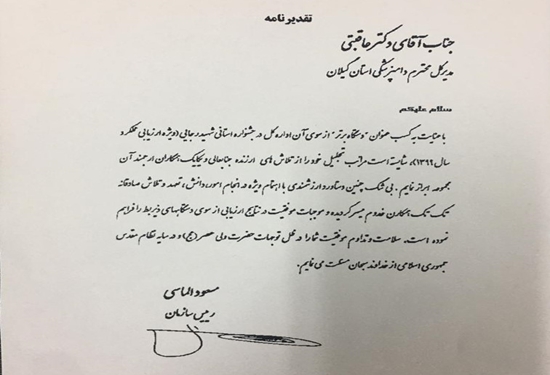 تقدیرنامه
جناب آقای دکتر عاقبتی
مدیرکل محترم دامپزشکی استان گیلان
سلام علیکم
با عنایت به کسب عنوان "دستگاه برتر" از سوی آن اداره کل در جشنواره استانی شهید رجایی (ویژه ارزیابی عملکرد
سال ۱۳۹۶)، شایسته است مراتب تجلیل خود را از تلاش های ارزنده جنابعالی و یکایک همکاران ارجمند آن
مجموعه ابراز نمایم. بی شک چنین دستاورد ارزشمندی با اهتمام ویژه در انجام امور، دانش، تعهد و تلاش صادقانه
تک تک همکاران خدوم میسر گردیده و موجبات موفقیت در نتایج ارزیابی از سوی دستگاههای ذیربط را فراهم
نموده است. سلامت و تداوم موفقیت شما را در ظل توجهات حضرت ولی عصر (عج) و در سایه نظام مقدس
جمهوری اسلامی از خداوند سبحان مسئلت می نمایم.
مسعود الماسی
رییس سازمان